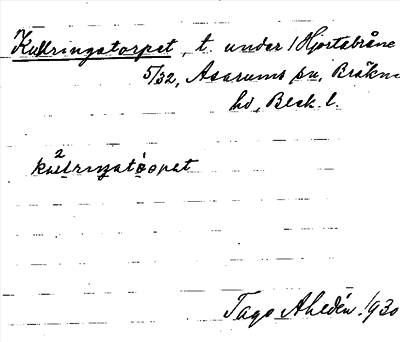 Kullringstorpet, t. under 1 Hjortsbråne
5/32, Asarums sn, Bräkne
hd, Blek. l.
Tage Ahldén 1930